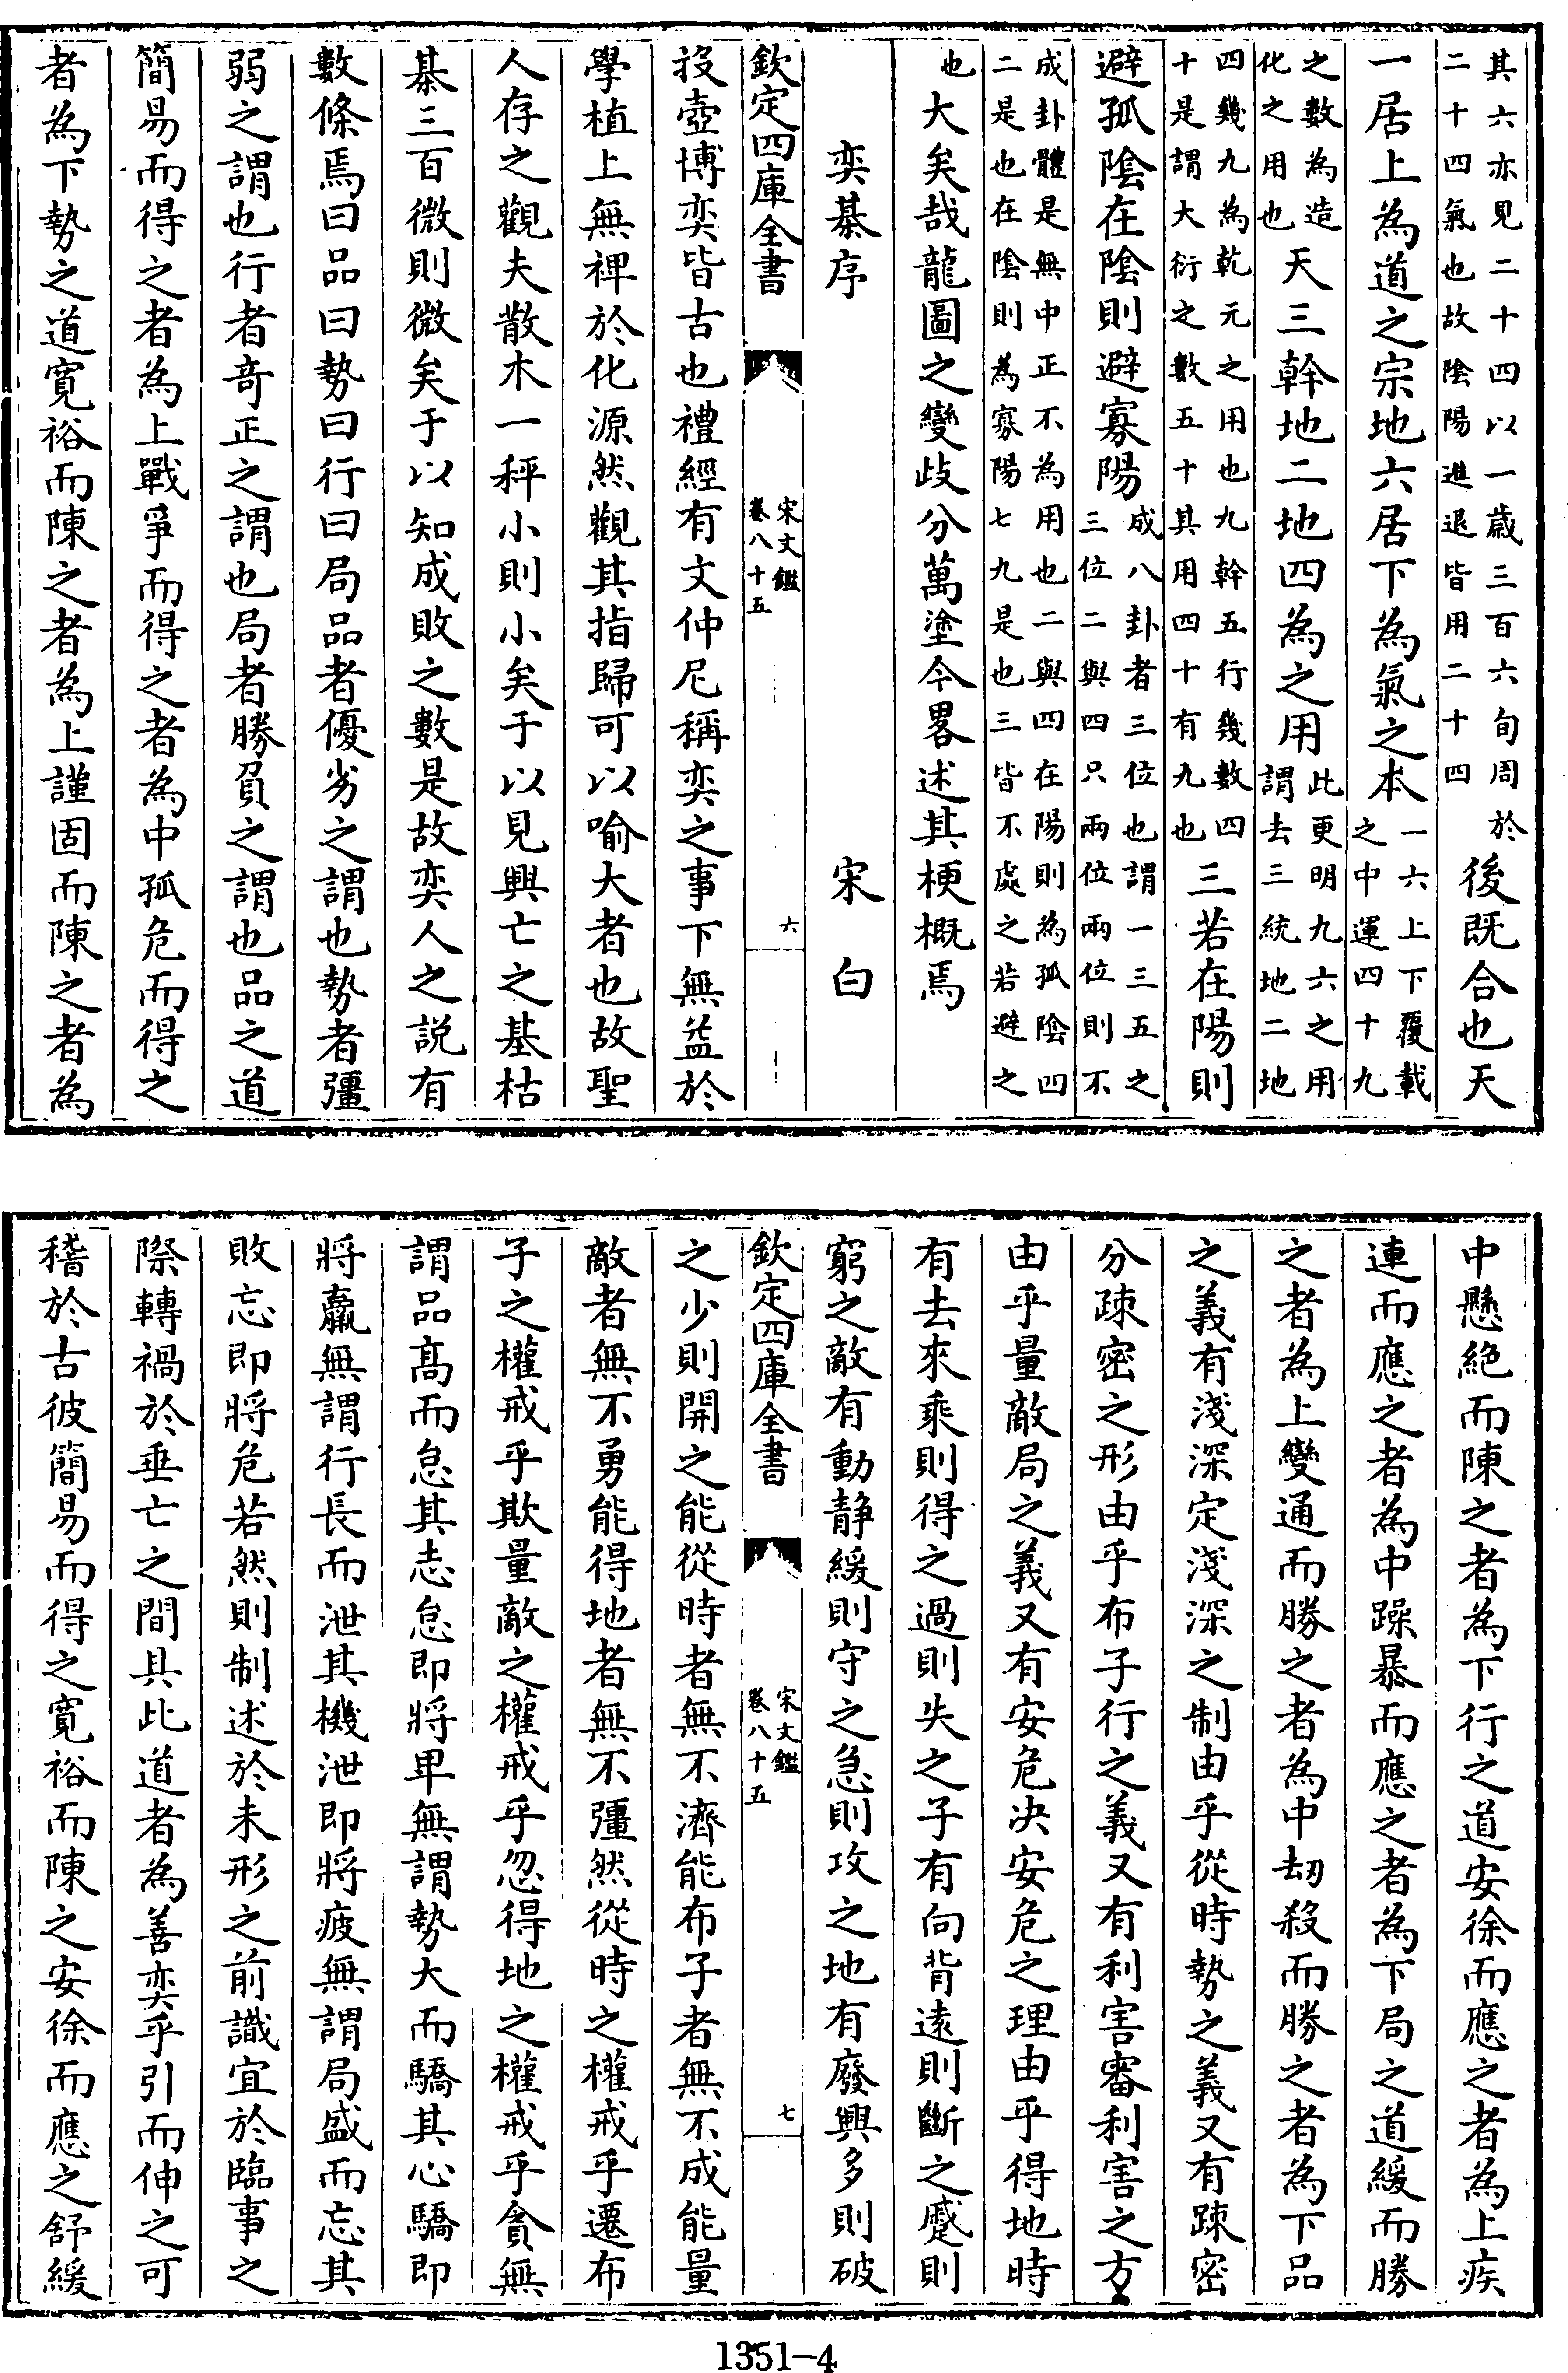 其六亦見二十四以一歳三百六旬周於
二十四氣也故陰陽進退皆用二十四
後既合也天
一居上為道之宗地六居下為氣之本
一六上下覆載
之中運四十九
之數為造
化之用也
天三幹地二地四為之用
此更明九六之用
謂去三統地二地
四幾九為乾元之用也九幹五行幾數四
十是謂大衍之數五十其用四十有九也
三若在陽則
避孤陰在陰則避寡陽
成八卦者三位也謂一三五之
三位二與四只兩位兩位則不
成卦體是無中正不為用也二與四在陽則為孤陰四
二是也在陰則為寡陽七九是也三皆不處之若避之
也
大矣哉龍圖之變歧分萬塗今畧述其梗概焉
奕棊序 宋白
欽定四庫全書
宋文鑑
卷八十五
六
投壺博奕皆古也禮經有文仲尼稱奕之事下無益於
學植上無裨於化源然觀其指歸可以喻大者也故聖
人存之觀夫散木一秤小則小矣于以見興亡之基枯
棊三百微則微矣于以知成敗之數是故奕人之説有
數條焉曰品曰勢曰行曰局品者優劣之謂也勢者彊
弱之謂也行者竒正之謂也局者勝負之謂也品之道
簡易而得之者為上戰爭而得之者為中孤危而得之
者為下勢之道寛裕而陳之者為上謹固而陳之者為
中懸絶而陳之者為下行之道安徐而應之者為上疾
連而應之者為中躁暴而應之者為下局之道緩而勝
之者為上變通而勝之者為中刧殺而勝之者為下品
之義有淺深定淺深之制由乎從時勢之義又有踈密
分踈密之形由乎布子行之義又有利害審利害之方
由乎量敵局之義又有安危决安危之理由乎得地時
有去來乘則得之過則失之子有向背遠則斷之蹙則
窮之敵有動静緩則守之急則攻之地有廢興多則破
欽定四庫全書
宋文鑑
卷八十五
七
之少則開之能從時者無不濟能布子者無不成能量
敵者無不勇能得地者無不彊然從時之權戒乎遷布
子之權戒乎欺量敵之權戒乎忽得地之權戒乎貪無
謂品髙而怠其志怠即將卑無謂勢大而驕其心驕即
將羸無謂行長而泄其機泄即將疲無謂局盛而忘其
敗忘即將危若然則制述於未形之前識宜於臨事之
際轉禍於垂亡之間具此道者為善奕乎引而伸之可
稽於古彼簡易而得之寛裕而陳之安徐而應之舒緩
1351-4